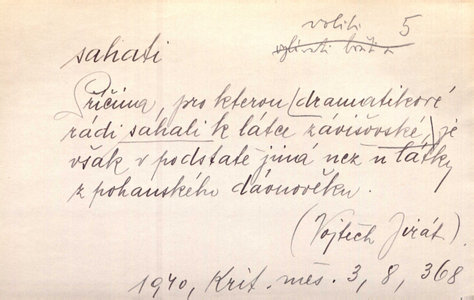 voliti 5
sahati
Příčina, pro kterou (dramatikové
rádi sahali k látce závišovské,) je
však v podstatě jiná než u látky
z pohanského dávnověku.
(Vojtěch Jirát).
1940, Krit. měs. 3, 8, 368